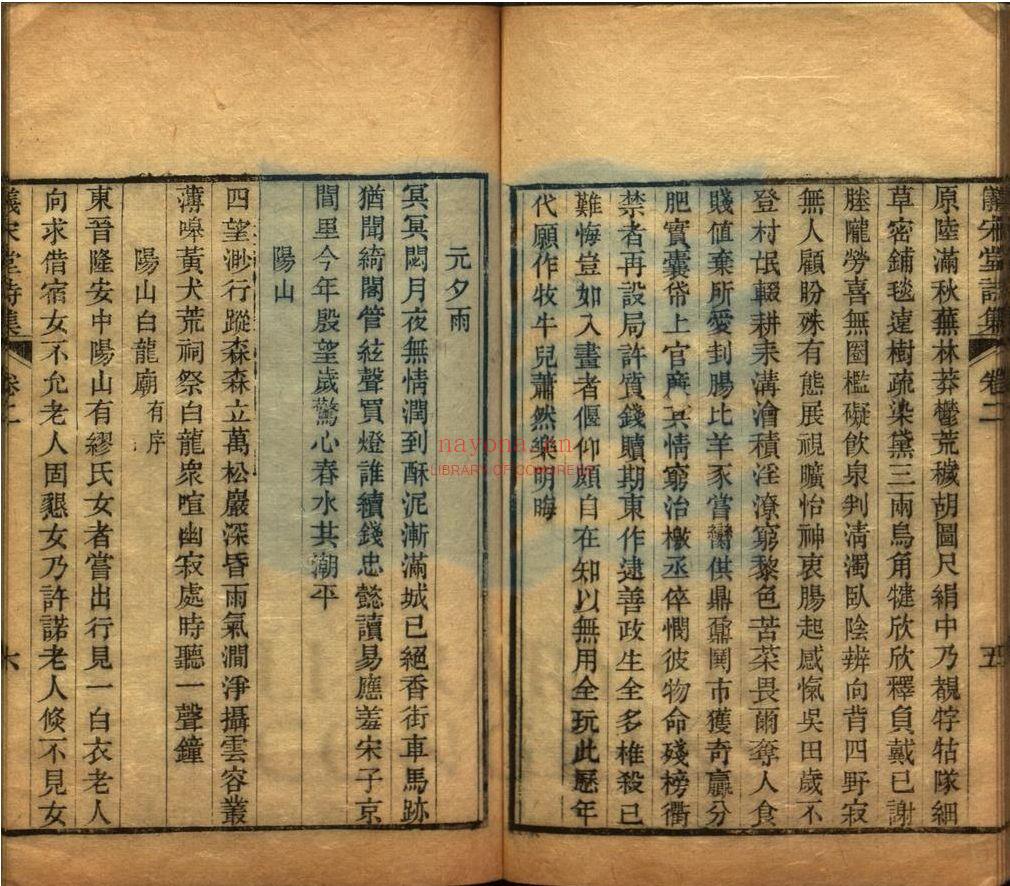 宋堂詩集 卷二 五
原陸滿秋蕪林莽鬱荒穢胡圖尺絹中乃覩牸牯隊細
草密鋪毯遠樹疏染黛三兩烏角犍欣欣釋負戴已謝
塍隴勞喜無圈檻礙飲泉判淸濁臥陰辨向背四野寂
無人顧盼殊有態展視曠怡神衷腸起感愾吳田歲不
登村氓輟耕耒溝澮積淫潦窮黎色苦菜畏爾奪人食
賤值棄所愛刲腸比羊豕嘗臠供鼎鼐鬨市獲奇贏分
肥實囊帒上官廉其情窮治檄丞倅憫彼物命殘榜衢
禁者再設局許質錢贖期東作逮善政生全多椎殺已
難悔豈如入畫者偃仰頗自在知以無用全玩此歷年
代願作牧牛兒蕭然樂明晦
元夕雨
冥冥閟月夜無情潤到酥泥漸滿城已絕香街車馬跡
猶聞綺閣管絃聲買燈誰續錢忠懿讀易應羞宋子京
閭里今年殷望歲驚心春水共潮平
陽山
四望渺行蹤森森立萬松巖深昏雨氣澗淨攝雲容叢
薄嘷黃犬荒祠祭白龍衆喧幽寂處時聽一聲鐘
陽山白龍廟有序
東晉隆安中陽山有繆氏女者嘗出行見一白衣老人
向求借宿女不允老人固懇女乃許諾老人倏不見女
宋堂詩集 卷二 六
nayona.cn
LIBRARY OF CONGRESS